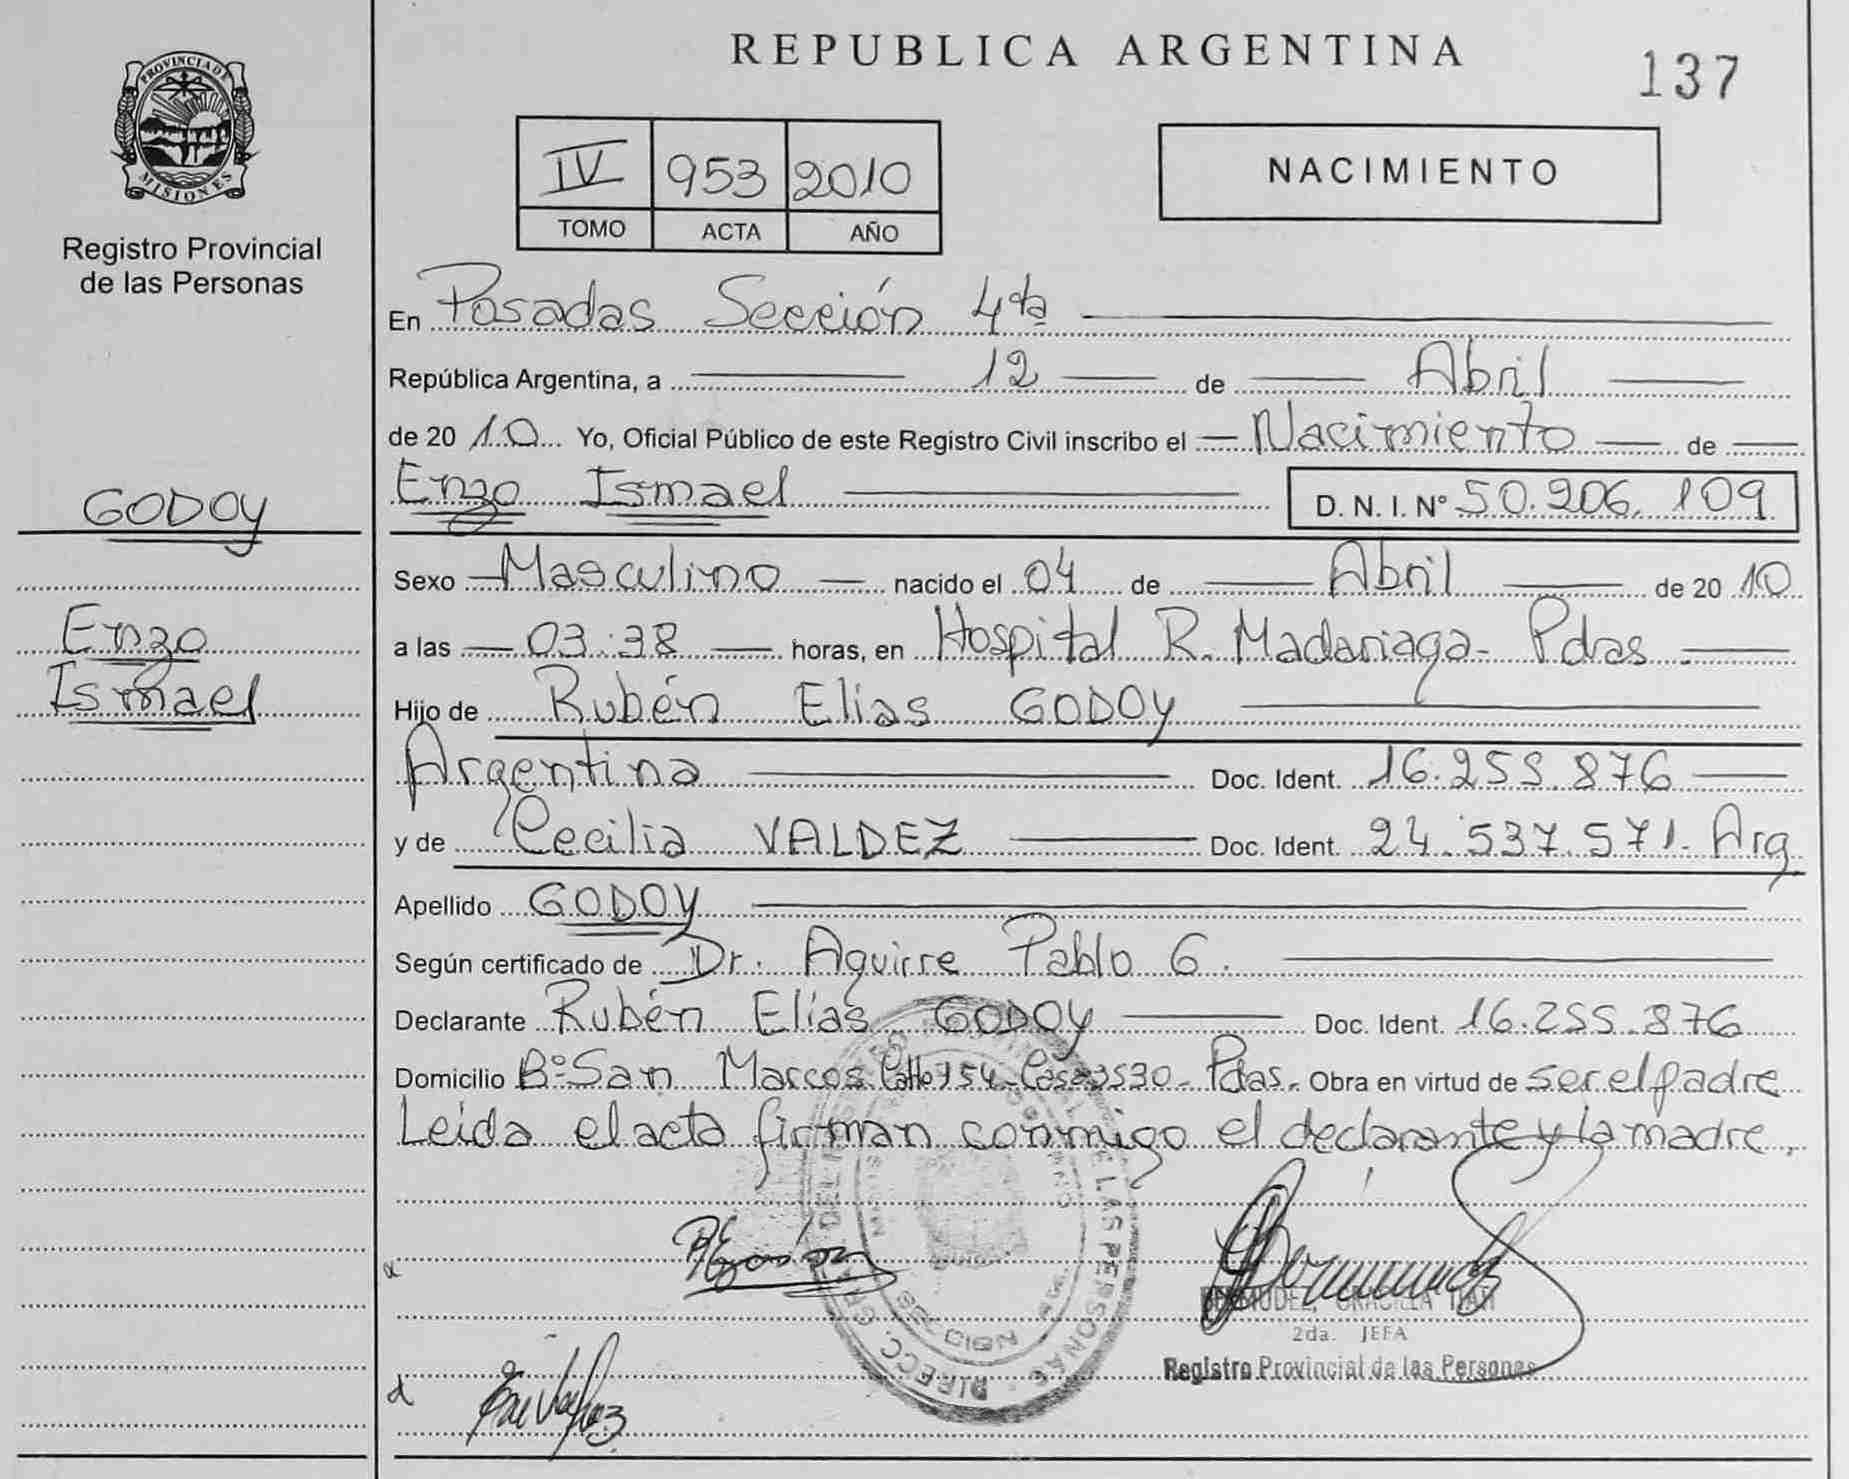 REPUBLICA ARGENTINA
137
PROVINCIA DE
MISIONES
Registro Provincial
de las Personas
IV 953 2010
TOMO ACTA AÑO
NACIMIENTO
En Posadas Sección 4ta
República Argentina, a 12 de Abril
de 20 10 Yo, Oficial Público de este Registro Civil inscribo el Nacimiento de
Enzo Ismael D. N. I. Nº 50.206.109
GODOY
Enzo
Ismael
Sexo Masculino nacido el 04 de Abril de 20 10
a las 03:38 horas, en Hospital R. Madariaga - Pdas.
Hijo de Rubén Elias GODOY
Argentina Doc. Ident. 16.255.876
y de Cecilia VALDEZ Doc. Ident. 24.537.571. Arg.
Apellido GODOY
Según certificado de Dr. Aguirre Pablo G.
Declarante Rubén Elías GODOY Doc. Ident. 16.255.876
Domicilio Bº San Marcos Calle 154 - Casa 3530 - Pdas. Obra en virtud de ser el padre
Leida el acta firman conmigo el declarante y la madre.
2da. JEFA
Registro Provincial de las Personas